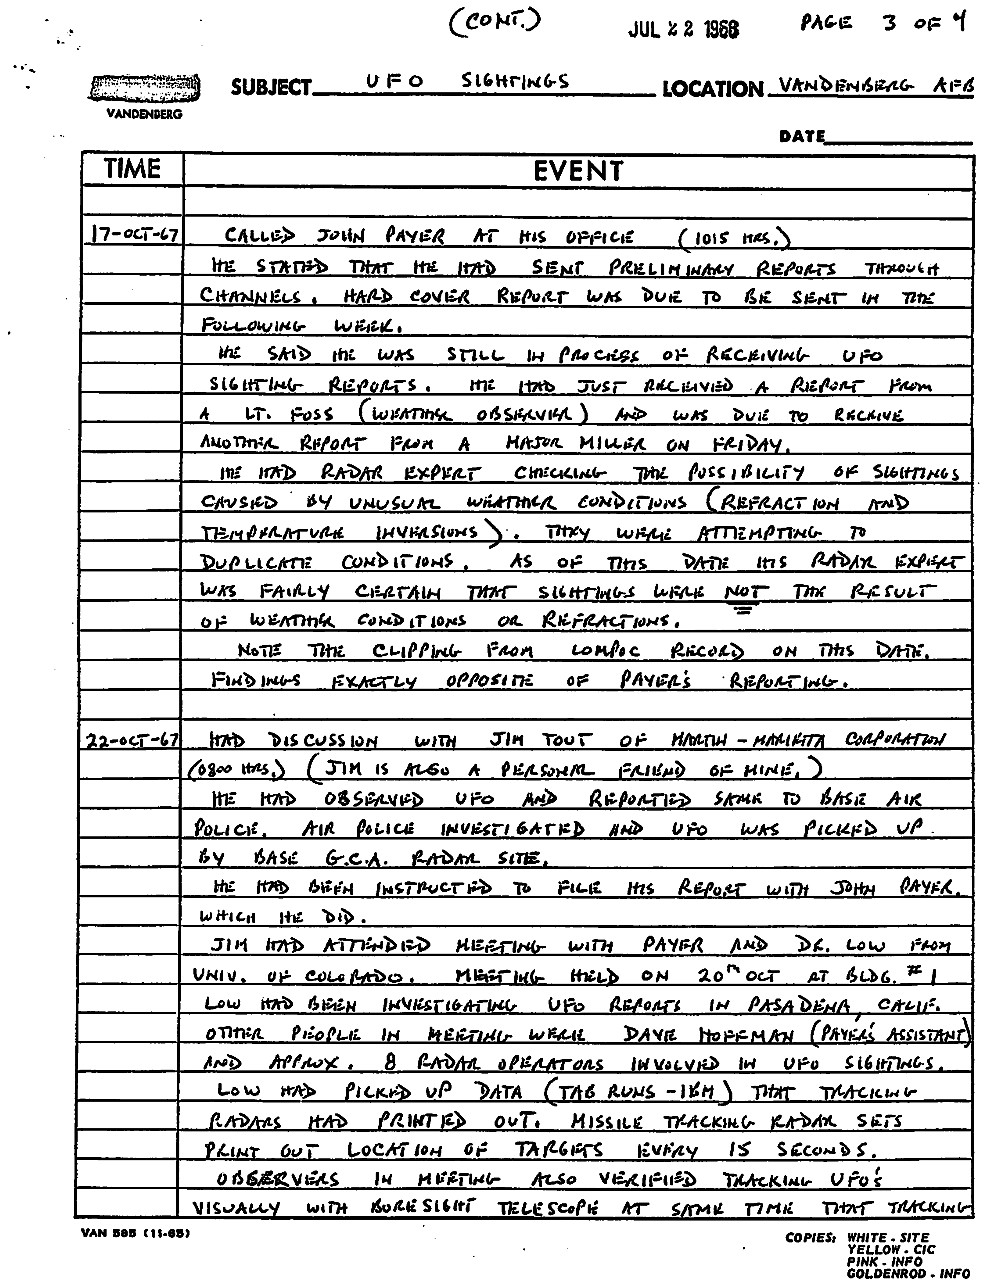 (CONT.) JUL 22 1968 PAGE 3 OF 4
SUBJECT UFO SIGHTINGS LOCATION VANDENBERG AFB
VANDENBERG
DATE
TIME EVENT
17-OCT-67 CALLED JOHN PAYER AT HIS OFFICE (1015 HRS.)
HE STATED THAT HE HAD SENT PRELIMINARY REPORTS THROUGH
CHANNELS. HARD COVER REPORT WAS DUE TO BE SENT IN THE
FOLLOWING WEEK.
HE SAID HE WAS STILL IN PROCESS OF RECEIVING UFO
SIGHTING REPORTS. HE HAD JUST RECEIVED A REPORT FROM
A LT. FOSS (WEATHER OBSERVER) AND WAS DUE TO RECEIVE
ANOTHER REPORT FROM A MAJOR MILLER ON FRIDAY.
HE HAD RADAR EXPERT CHECKING THE POSSIBILITY OF SIGHTINGS
CAUSED BY UNUSUAL WEATHER CONDITIONS (REFRACTION AND
TEMPERATURE INVERSIONS). THEY WERE ATTEMPTING TO
DUPLICATE CONDITIONS. AS OF THIS DATE HIS RADAR EXPERT
WAS FAIRLY CERTAIN THAT SIGHTINGS WERE NOT THE RESULT
OF WEATHER CONDITIONS OR REFRACTIONS.
NOTE THE CLIPPING FROM LOMPOC RECORD ON THIS DATE.
FINDINGS EXACTLY OPPOSITE OF PAYER'S REPORTING.
22-OCT-67 HAD DISCUSSION WITH JIM TOUT OF MARTIN-MARIETTA CORPORATION
(0800 HRS.) (JIM IS ALSO A PERSONAL FRIEND OF MINE.)
HE HAD OBSERVED UFO AND REPORTED SAME TO BASE AIR
POLICE. AIR POLICE INVESTIGATED AND UFO WAS PICKED UP
BY BASE G.C.A. RADAR SITE.
HE HAD BEEN INSTRUCTED TO FILE HIS REPORT WITH JOHN PAYER.
WHICH HE DID.
JIM HAD ATTENDED MEETING WITH PAYER AND DR. LOW FROM
UNIV. OF COLORADO. MEETING HELD ON 20TH OCT AT BLDG. #1
LOW HAD BEEN INVESTIGATING UFO REPORTS IN PASADENA, CALIF.
OTHER PEOPLE IN MEETING WERE DAVE HOFFMAN (PAYER'S ASSISTANT)
AND APPROX. 8 RADAR OPERATORS INVOLVED IN UFO SIGHTINGS.
LOW HAD PICKED UP DATA (TAB RUNS - IBM) THAT TRACKING
RADARS HAD PRINTED OUT. MISSILE TRACKING RADAR SETS
PRINT OUT LOCATION OF TARGETS EVERY 15 SECONDS.
OBSERVERS IN MEETING ALSO VERIFIED TRACKING UFO'S
VISUALLY WITH BORESIGHT TELESCOPE AT SAME TIME THAT TRACKING
VAN 595 (11-65)
COPIES: WHITE - SITE
YELLOW - CIC
PINK - INFO
GOLDENROD - INFO